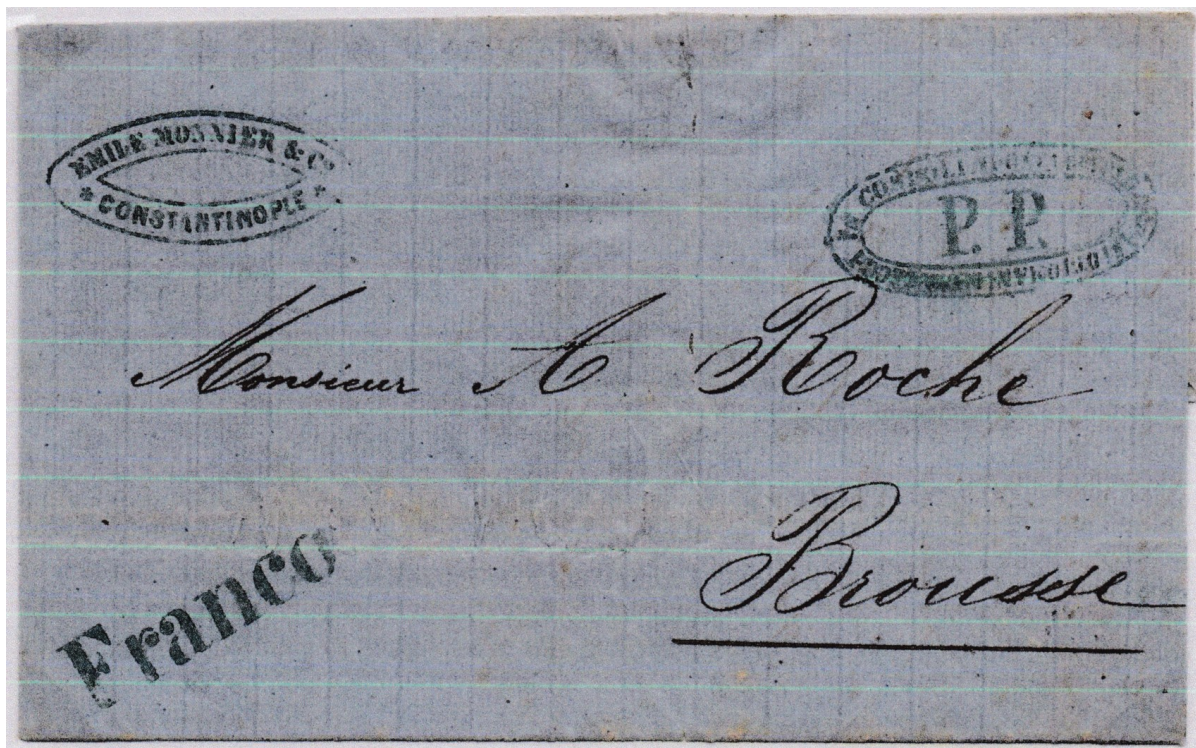 EMILE MONNIER & Co
* CONSTANTINOPLE *
P. P.
Monsieur A Roche
Brousse
Franco